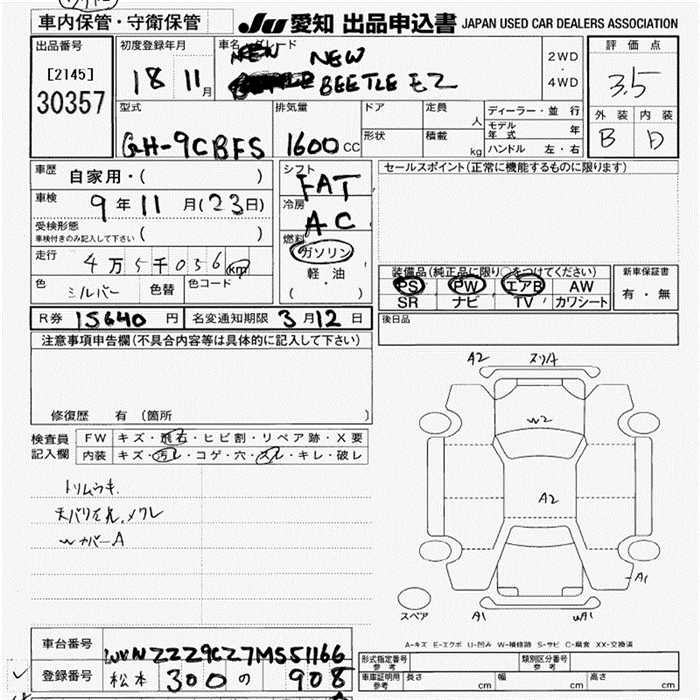 車内保管・守衛保管
JU 愛知 出品申込書 JAPAN USED CAR DEALERS ASSOCIATION
出品番号
[2145]
30357
初度登録年月
18 11 月
車名 グレード
NEW
BEETLE EZ
2WD
・
4WD
評価点
3.5
外装 内装
B D
型式
GH-9CBFS
排気量
1600 CC
ドア
形状
定員 人
積載 kg
ディーラー・並行
モデル年式 年
ハンドル 左・右
車歴 自家用・( )
車検 9年11月(23日)
受検形態
車検付きのみ記入して下さい ( )
走行 4万5千036 km
色 シルバー 色替 色コード
シフト
FAT
冷房
AC
燃料
ガソリン
軽・油
( )
セールスポイント(正常に機能するものに限ります)
装備品(純正品に限り○をつけてください)
PS PW エアB AW
SR ナビ TV カワシート
新車保証書
有・無
R券 15640 円 名変通知期限 3月12日
後日品
注意事項申告欄(不具合内容等は具体的に記入して下さい)
修復歴 有(箇所 )
検査員
記入欄
FW キズ・飛石・ヒビ割・リペア跡・X要
内装 キズ・汚レ・コゲ・穴・スレ・キレ・破レ
トリムウキ
Wカバー A
A2
W2
A2
A1
スペア
A1
A-キズ E-エクボ U-凹み W-補修跡 S-サビ C-腐食 XX-交換済
車台番号 WVWZZZ9CZ7M551166
登録番号 松本 300 の 908
形式指定番号
参考
類別区分番号
参考
車庫証明用
参考
長さ cm 幅 cm 高さ cm